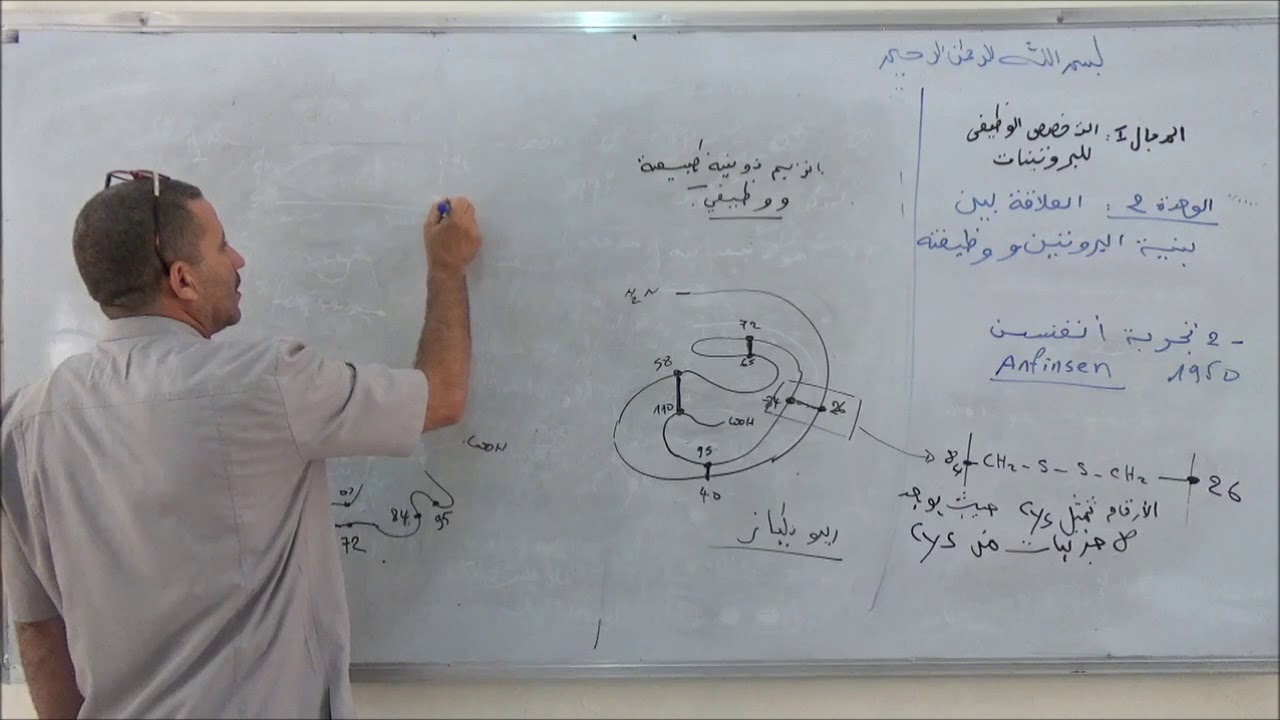 بسم الله الرحمان الرحيم
المجال I: التخصص الوظيفي
للبروتينات
الوحدة 2: العلاقة بين
بنية البروتين ووظيفته
2- تجربة أنفنسن
Anfinsen 1950
إنزيم ذو بنية طبيعية
ووظيفي
H2N
72
65
58
110
COOH
26
95
40
84 CH2-S-S-CH2 26
الأرقام تمثل Cys حيث يوجد
8 جزيئات من Cys
ريبونكلياز
COOH
84
95
72